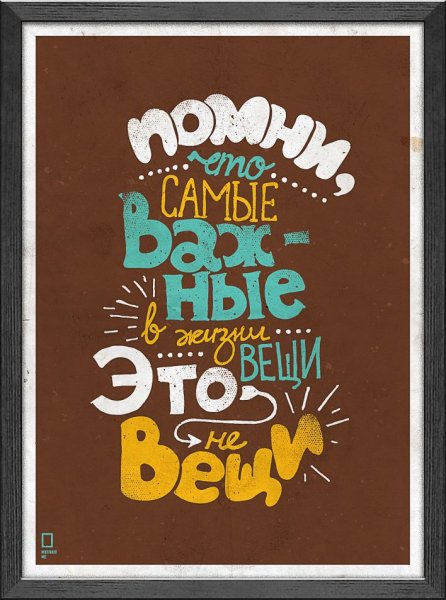 Помни,
что
САМЫЕ
Важ-
ные
в жизни
ВЕЩИ
Это
не
Вещи
MOTIVATE
ME